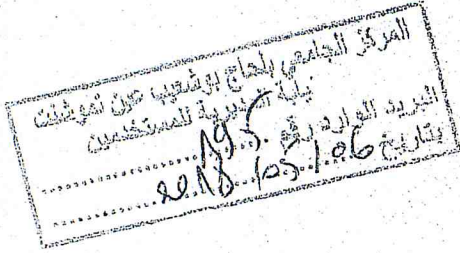 المركز الجامعي بلحاج بوشعيب عين تموشنت
نيابة المديرية للمستخدمين
البريد الوارد رقم 195
بتاريخ 2018/05/06